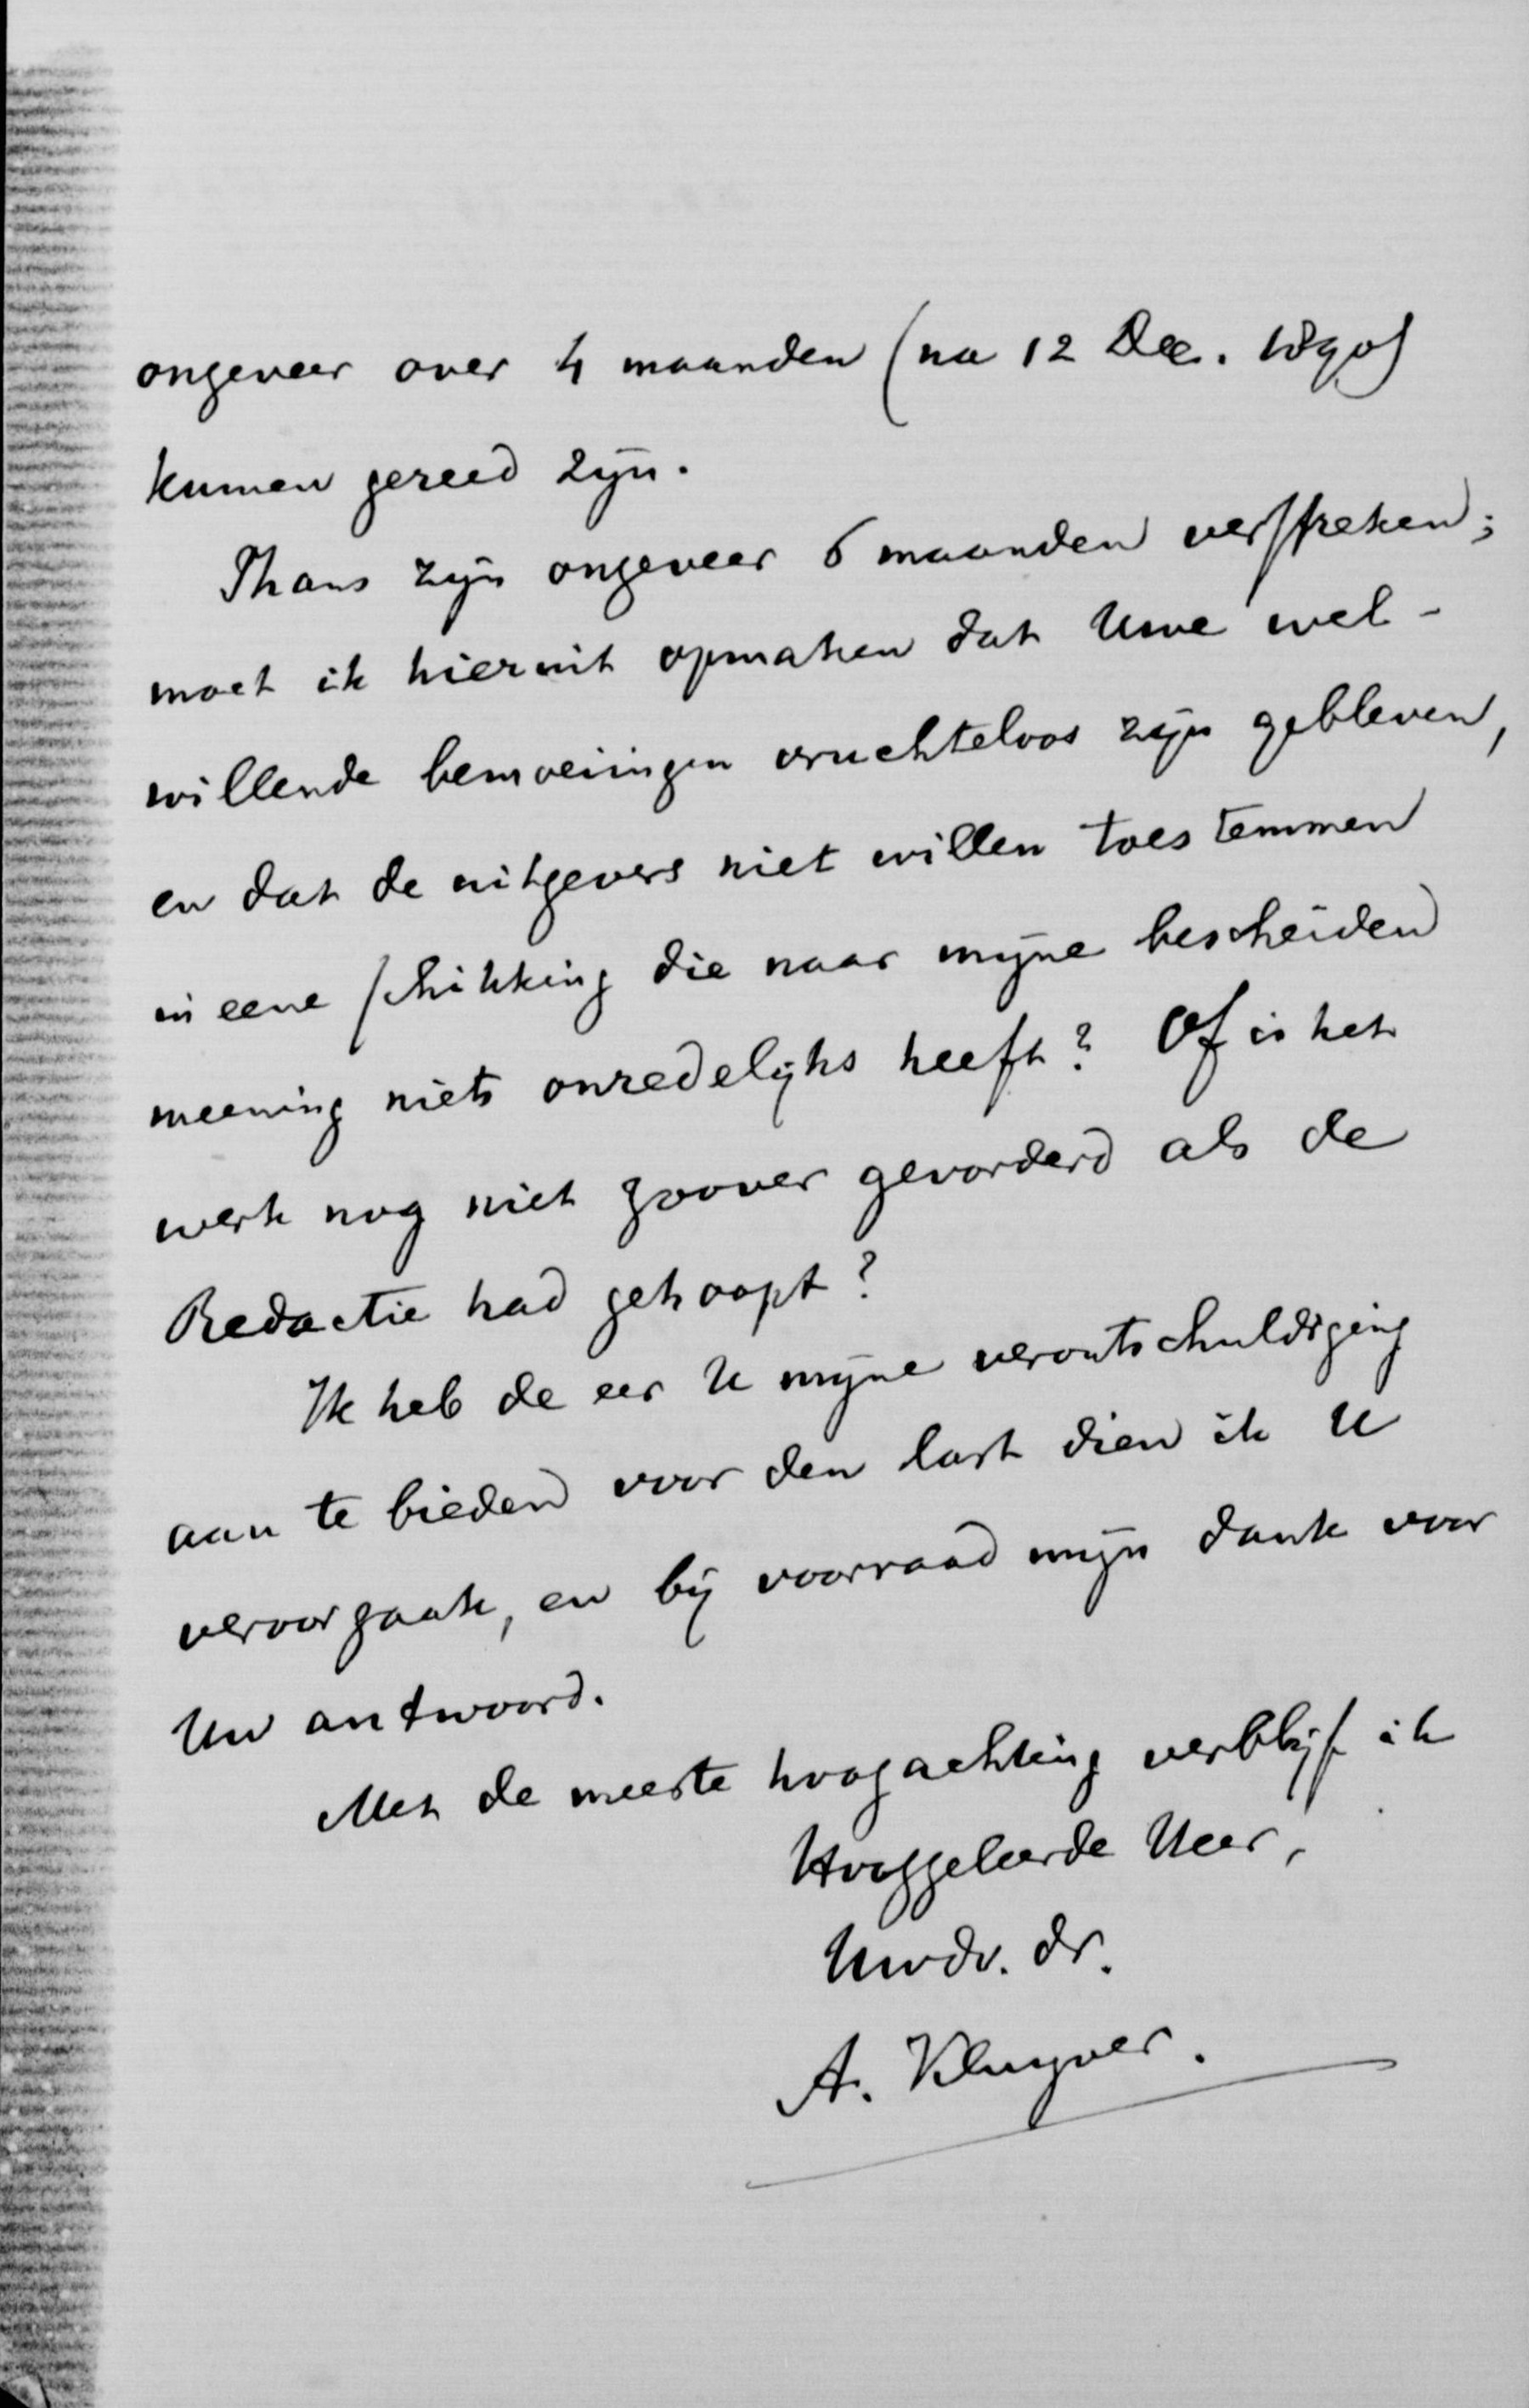 ongeveer over 4 maanden (na 12 Dec. 1890)
kunnen gereed zijn.
Thans zijn ongeveer 6 maanden verstreken;
moet ik hieruit opmaken dat Uwe wel-
willende bemoeiingen vruchteloos zijn gebleven,
en dat de uitgevers niet willen toestemmen
in eene schikking die naar mijne bescheiden
meening niets onredelijks heeft? Of is het
werk nog niet zoover gevorderd als de
Redactie had gehoopt?
Ik heb de eer U mijne verontschuldiging
aan te bieden voor den last dien ik U
veroorzaak, en bij voorraad mijn dank voor
Uw antwoord.
Met de meeste hoogachting verblijf ik
Hooggeleerde Heer,
Uwdv. dr.
A. Kluyver.